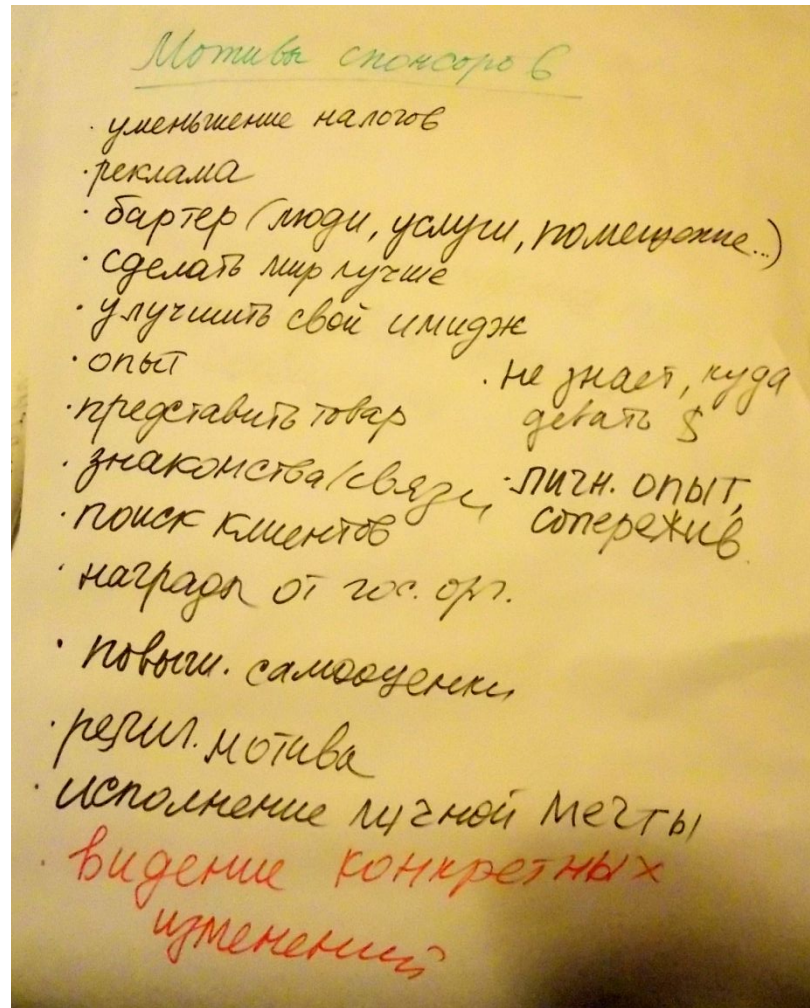 Мотивы спонсоров
· уменьшение налогов
· реклама
· бартер (люди, услуги, помещение...)
· сделать мир лучше
· улучшить свой имидж
· опыт
· представить товар
· знакомства/связи
· поиск клиентов
· награды от гос. орг.
· повыш. самооценки
· религ. мотива
· исполнение личной мечты
· видение конкретных
изменений
· не знает, куда
девать $
· личн. опыт,
сопережив.